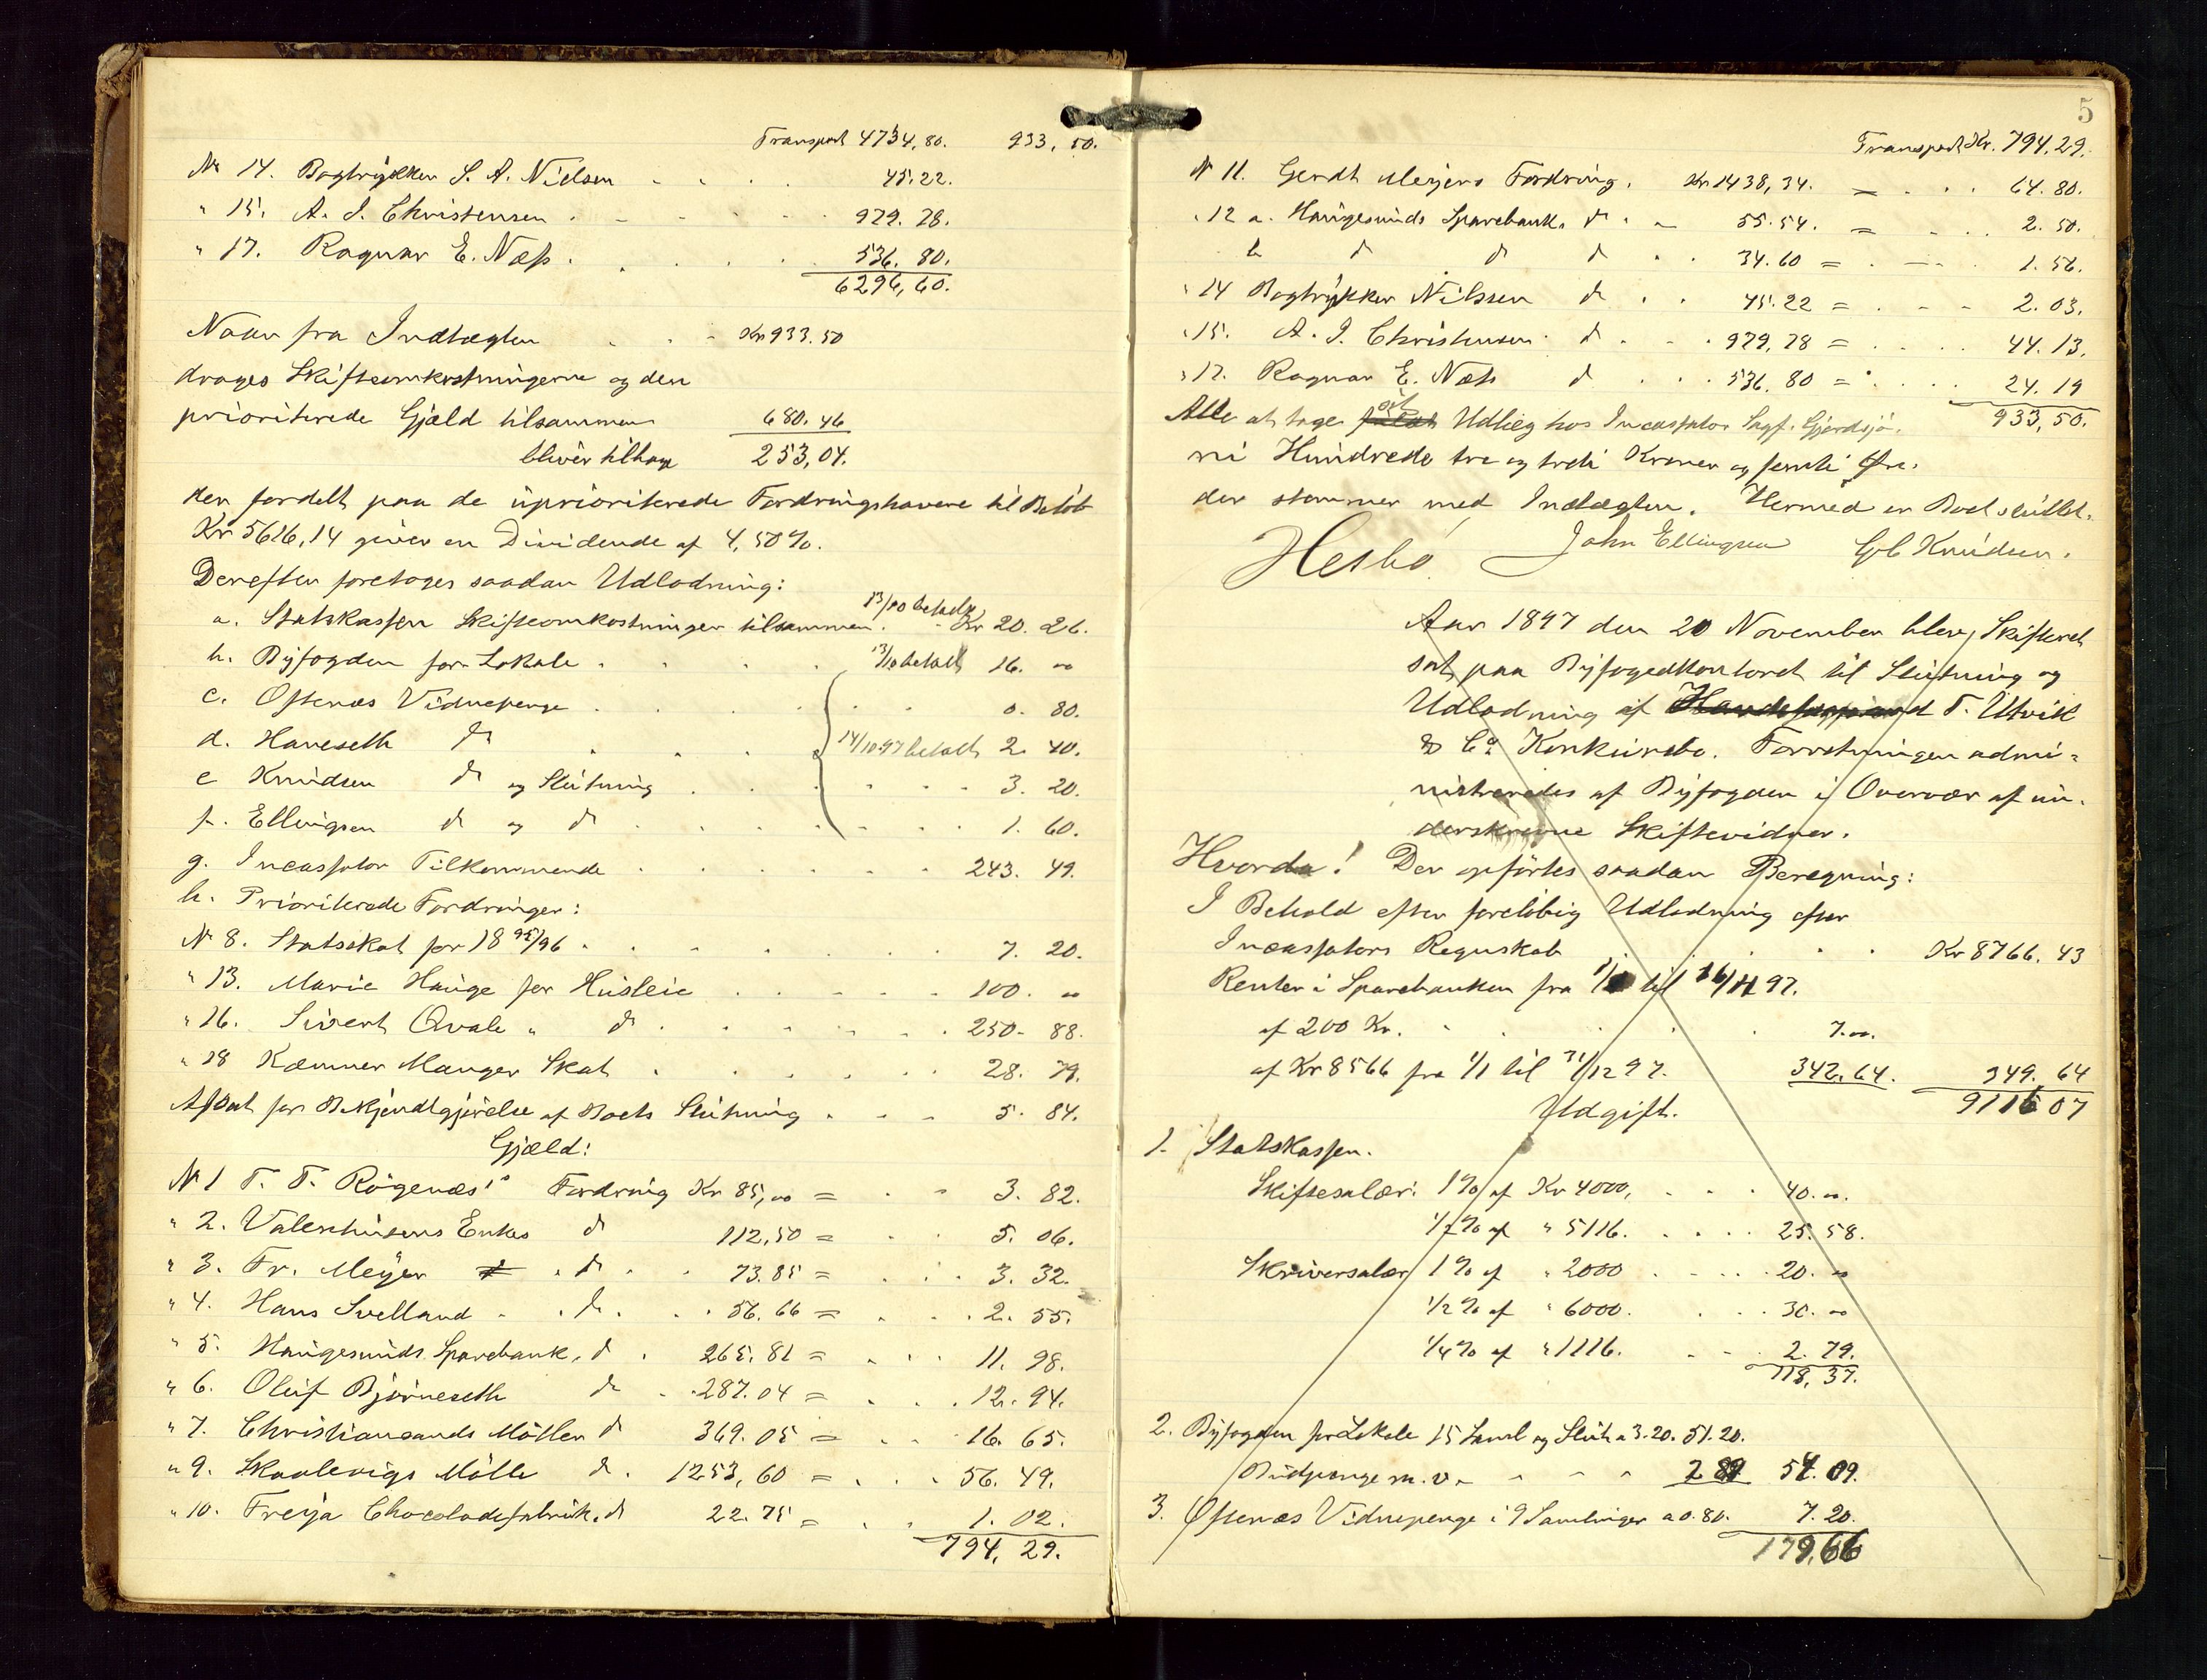 Transport 4734,80. 933,50.
No 14. Bogtrykker S. A. Nielsen 45.22.
" 15. A. I. Christensen 979.78.
" 17. Ragnar E. Næss 536.80.
6296,60.
Naar fra Indtægten Kr 933.50
drages Skifteomkostningerne og den
prioriterede Gjæld tilsammen 680.46
bliver tilbage 253,04.
der fordelt paa de uprioriterede Fordringshavere til Beløb
Kr 5616,14 giver en Dividende af 4,50%.
Derefter foretoges saadan Udlodning:
a. Statskassen Skifteomkostninger tilsammen 13/10 betalt Kr 20.26.
b. Byfogden for Lokale 13/10 betalt 16. "
c. Østenæs Vidnepenge 0.80.
d. Haveseth do 14/10 97 betalt 2.40.
e Knudsen do og Slutning 3.20.
f. Ellingsen do og do 1.60.
g. Incassator Tilkommende 243.49.
h. Prioriterede Fordringer:
No 8. Statsskat for 18 95/96 7.20.
" 13. Marie Hauge for Husleie 100. "
" 16. Sivert Qvale " do 250.88.
" 18 Kæmner Manger Skat 28.79.
Afsat for Bekjendtgjørelse af Boets Slutning 5.84.
Gjæld:
No 1 T. T. Røgenæs' Fordring Kr 85,00 = 3.82.
" 2. Valentinsens Enkes do 112,50 = 5.06.
" 3. Fr. Meyer do 73.85 = 3.32.
" 4. Hans Svelland do 56.66 = 2.55.
" 5. Haugesunds Sparebank, do 265.81 = 11.98.
" 6. Oluf Bjørneseth do 287.04 = 12.94.
" 7. Christiansands Møller do 369.05 = 16.65.
" 9. Skaalevigs Mølle do 1253,60 = 56.49.
" 10. Freya Chocoladefabrik, do 22.75 = 1.02.
794,29.
5
Transport Kr. 794,29.
No 11. Gerdt Meyers Fordring. Kr 1438,34. = 64.80.
" 12 a. Haugesunds Sparebank. do 55.54. = 2.50.
b do do do 34.60 = 1.56.
" 14 Bogtrykker Nilssen do 45.22 = 2.03.
" 15. A. I. Christensen do 979,78 = 44.13.
" 17. Ragnar E. Næss do 536.80 = 24.19
933,50.
Alle at tage sit Udlæg hos Incassator Sagf. Gjerdsjø.
ni Hundrede tre og tredi Kroner og femti Øre.
der stemmer med Indtægten. Hermed er Boet sluttet.
Hesbø John Ellingsen Knudsen.
Aar 1897 den 20 November blev Skifteret
sat paa Byfogedkontoret til Slutning og
Udlodning af T. Utvik
& Co Konkursbo. Forretningen admi-
nistreredes af Byfogden i Overvær af un-
derskrevne Skiftevidner.
Hvorda! Der opførtes saadan Beregning:
I Behold efter foreløbig Udlodning efter
Incassators Regnskab Kr 8766.43
Renter i Sparebanken fra til 16/11 97.
af 200 Kr. 7.00.
af Kr 8566 fra 1/1 til 31/12 97. 342.64. 349.64
9116 07
Udgift.
1. Statskassen.
Skiftesalær: 1% af Kr 4000, 40.00.
1/2% af " 5116. 25.58.
Skriversalær 1% af " 2000 20.00
1/2% af " 6000. 30.00
1/4% af " 1116. 2.79.
118,37.
2. Byfogden for Lokale 15 Saml og Slutn a 3.20. 51.20.
Budpenge m.v. 2 89 54.09.
3. Østenæs Vidnepenge i 9 Samlinger a 0.80. 7.20.
179,66